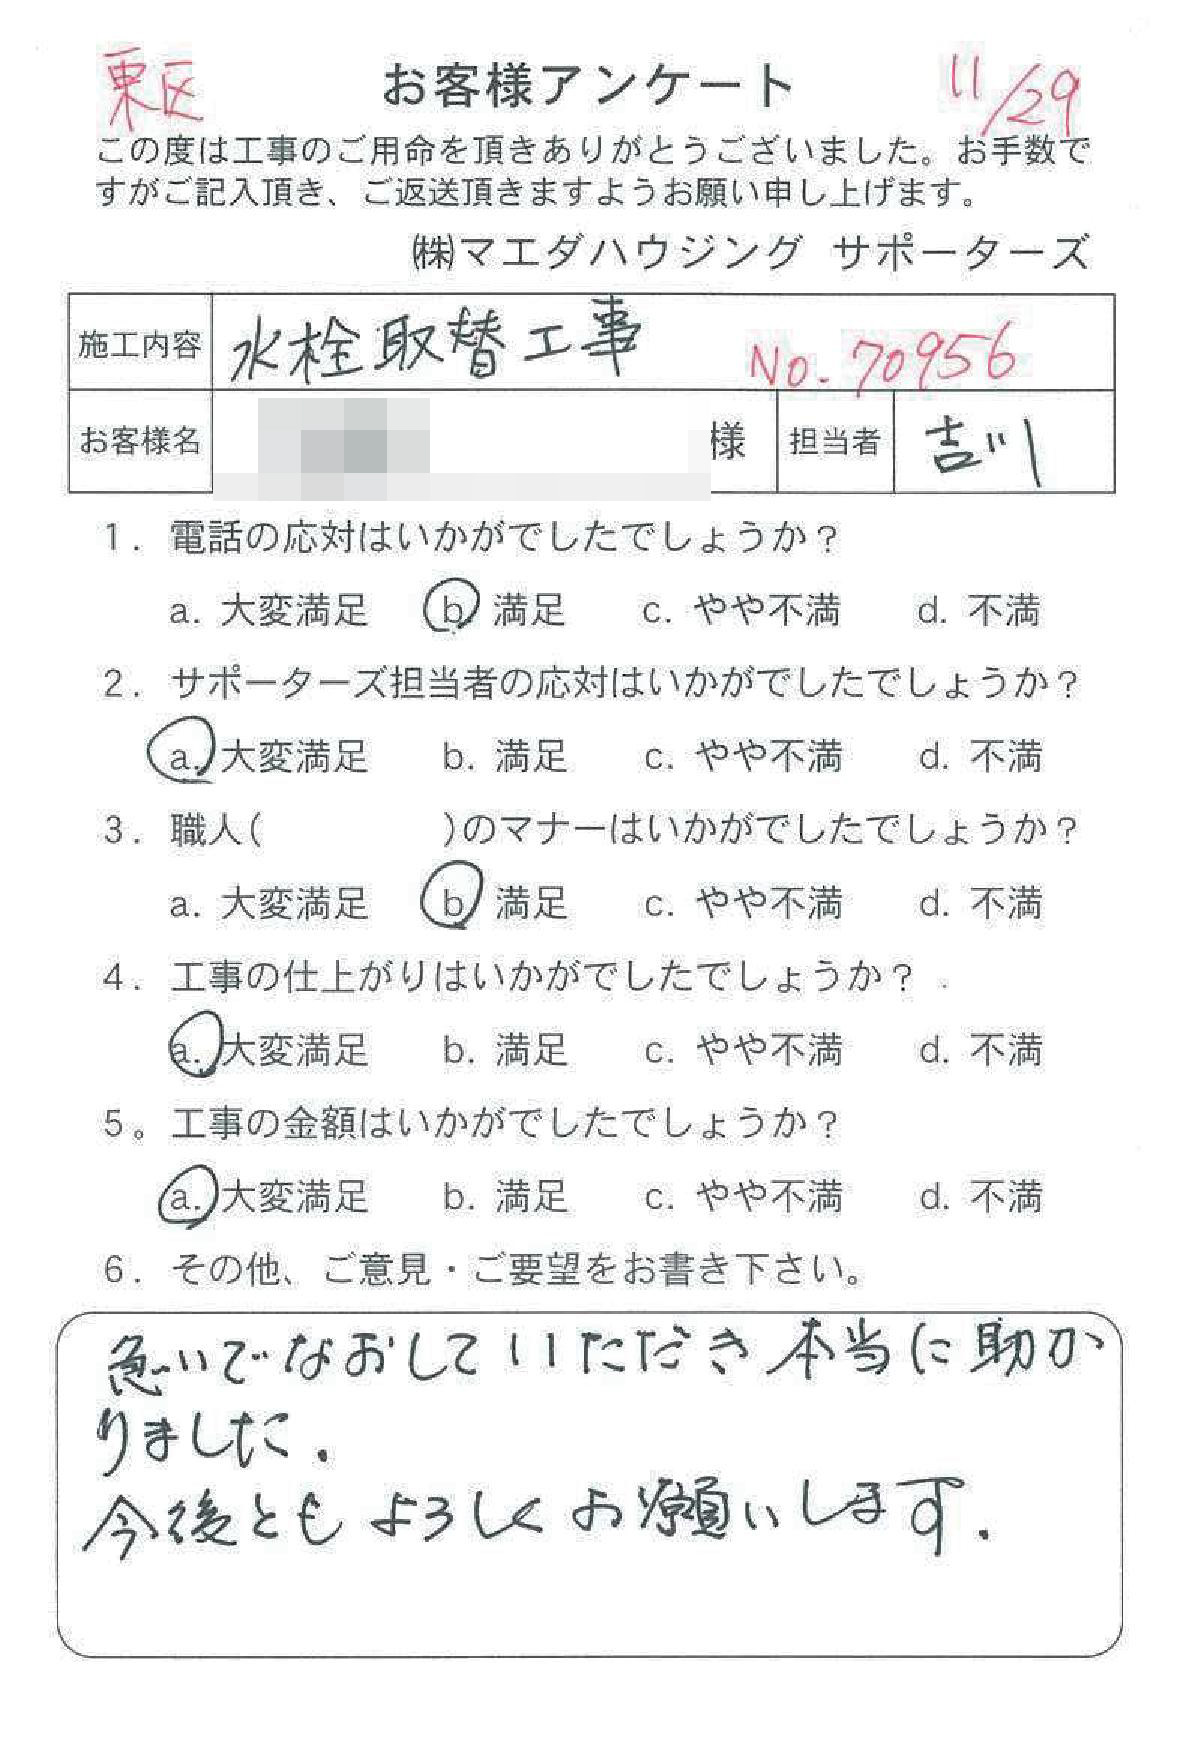 東区 お客様アンケート 11/29
この度は工事のご用命を頂きありがとうございました。お手数で
すがご記入頂き、ご返送頂きますようお願い申し上げます。
㈱マエダハウジング サポーターズ
施工内容 水栓取替工事 No.70956
お客様名 様 担当者 吉川
1. 電話の応対はいかがでしたでしょうか?
a. 大変満足 b. 満足 c. やや不満 d. 不満
2. サポーターズ担当者の応対はいかがでしたでしょうか?
a. 大変満足 b. 満足 c. やや不満 d. 不満
3. 職人( )のマナーはいかがでしたでしょうか?
a. 大変満足 b. 満足 c. やや不満 d. 不満
4. 工事の仕上がりはいかがでしたでしょうか?
a. 大変満足 b. 満足 c. やや不満 d. 不満
5。工事の金額はいかがでしたでしょうか?
a. 大変満足 b. 満足 c. やや不満 d. 不満
6. その他、ご意見・ご要望をお書き下さい。
急いでなおしていただき本当に助か
りました.
今後ともよろしくお願いします.